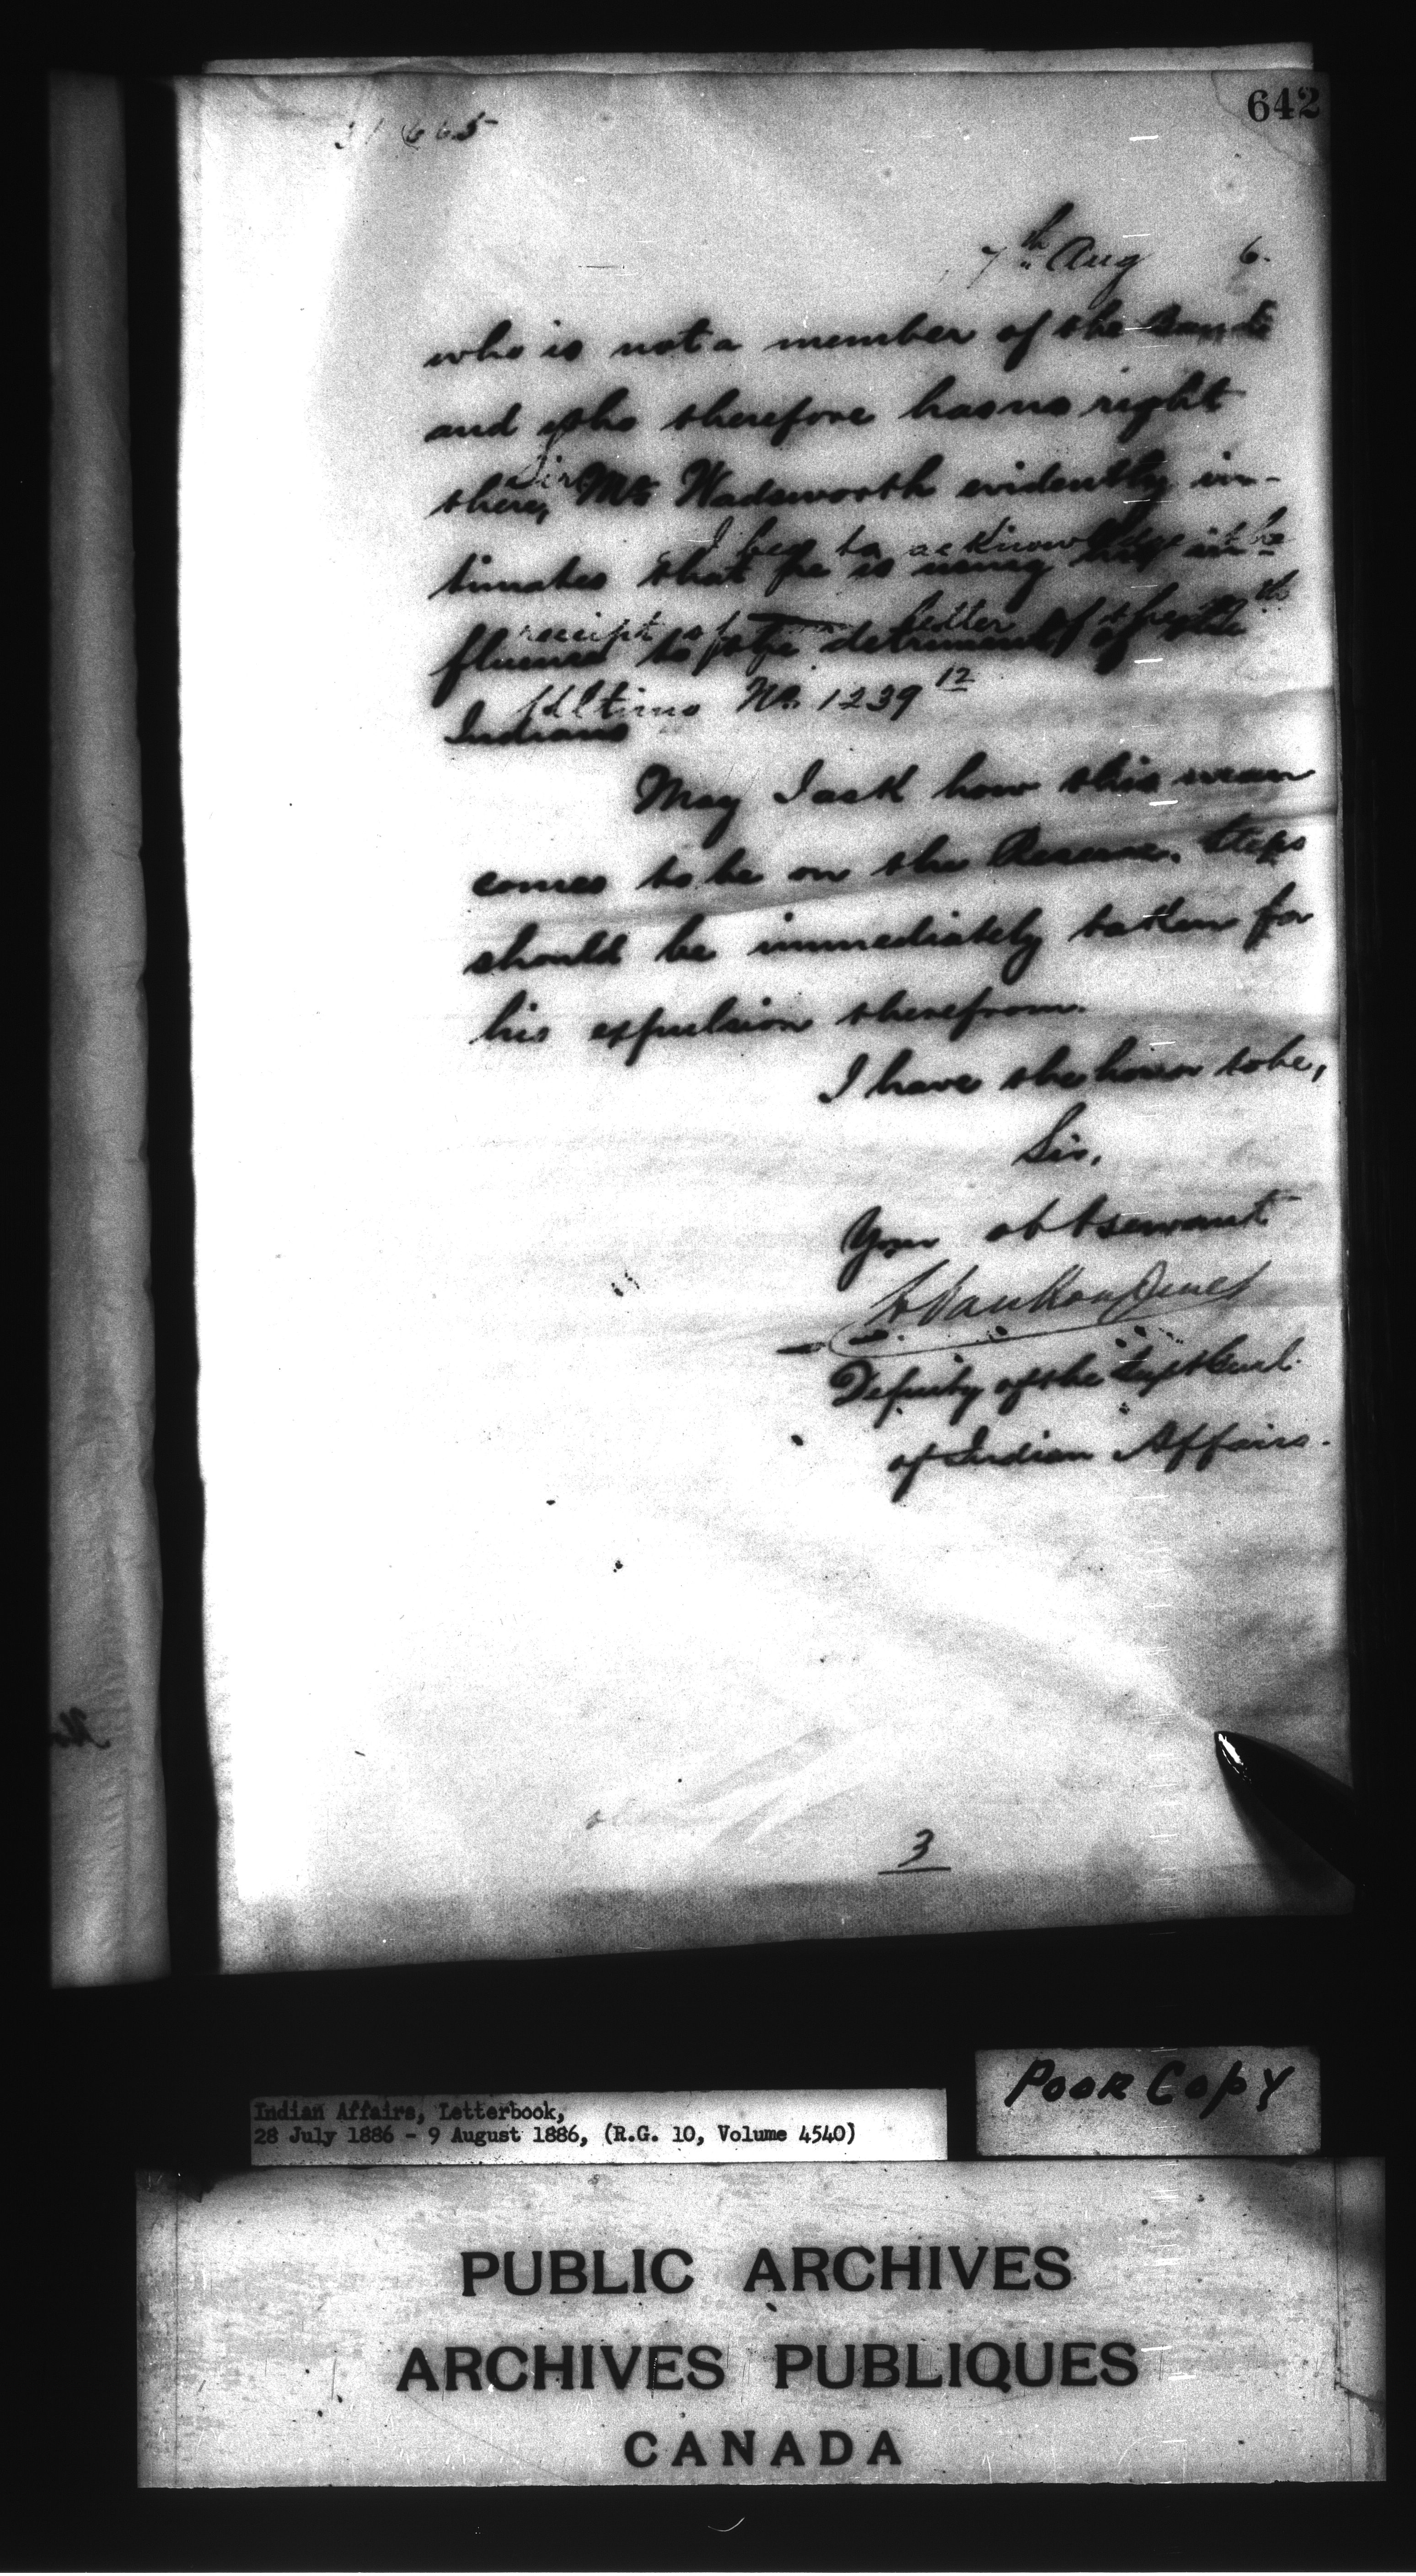 642
31665
7th Aug 6.
who is not a member of the Band
and who therefore has no right
Sir
there, Mr Wadsworth evidently in-
I beg to acknowledge the
timates that he is using his in-
receipt of letter of the
fluence to the detriment of the
Ultimo No. 1239 12
Indians
May I ask how this man
comes to be on the Reserve. Steps
should be immediately taken for
his expulsion therefrom.
I have the honor to be,
Sir,
Your obt servant
L Vankoughnet
Deputy of the Supt Genl.
of Indian Affairs.
3
POOR COPY
Indian Affairs, Letterbook,
28 July 1886 - 9 August 1886, (R.G. 10, Volume 4540)
PUBLIC ARCHIVES
ARCHIVES PUBLIQUES
CANADA